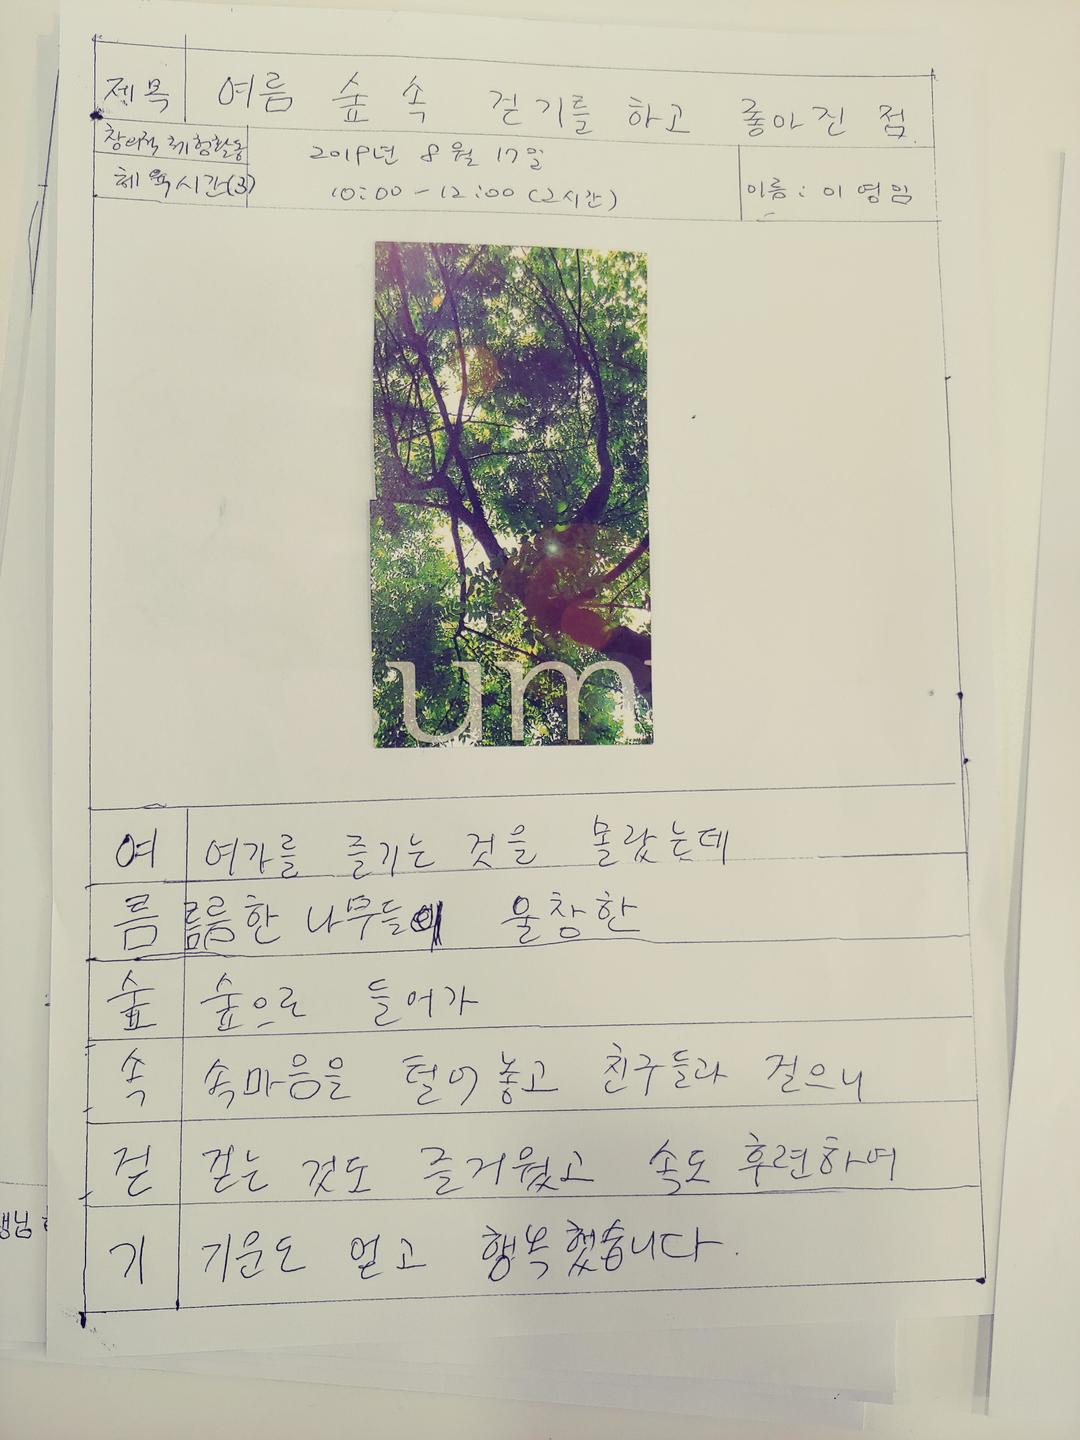 제목 여름 숲 속 걷기를 하고 좋아진 점
창의적 체험활동 2019년 8월 17일
체육시간(3) 10:00-12:00 (2시간) 이름: 이영임
um
여 여가를 즐기는 것을 몰랐는데
름 름름한 나무들이 울창한
숲 숲으로 들어가
속 속마음을 털어놓고 친구들과 걸으니
걷 걷는 것도 즐거웠고 속도 후련하며
기 기운도 얻고 행복했습니다.